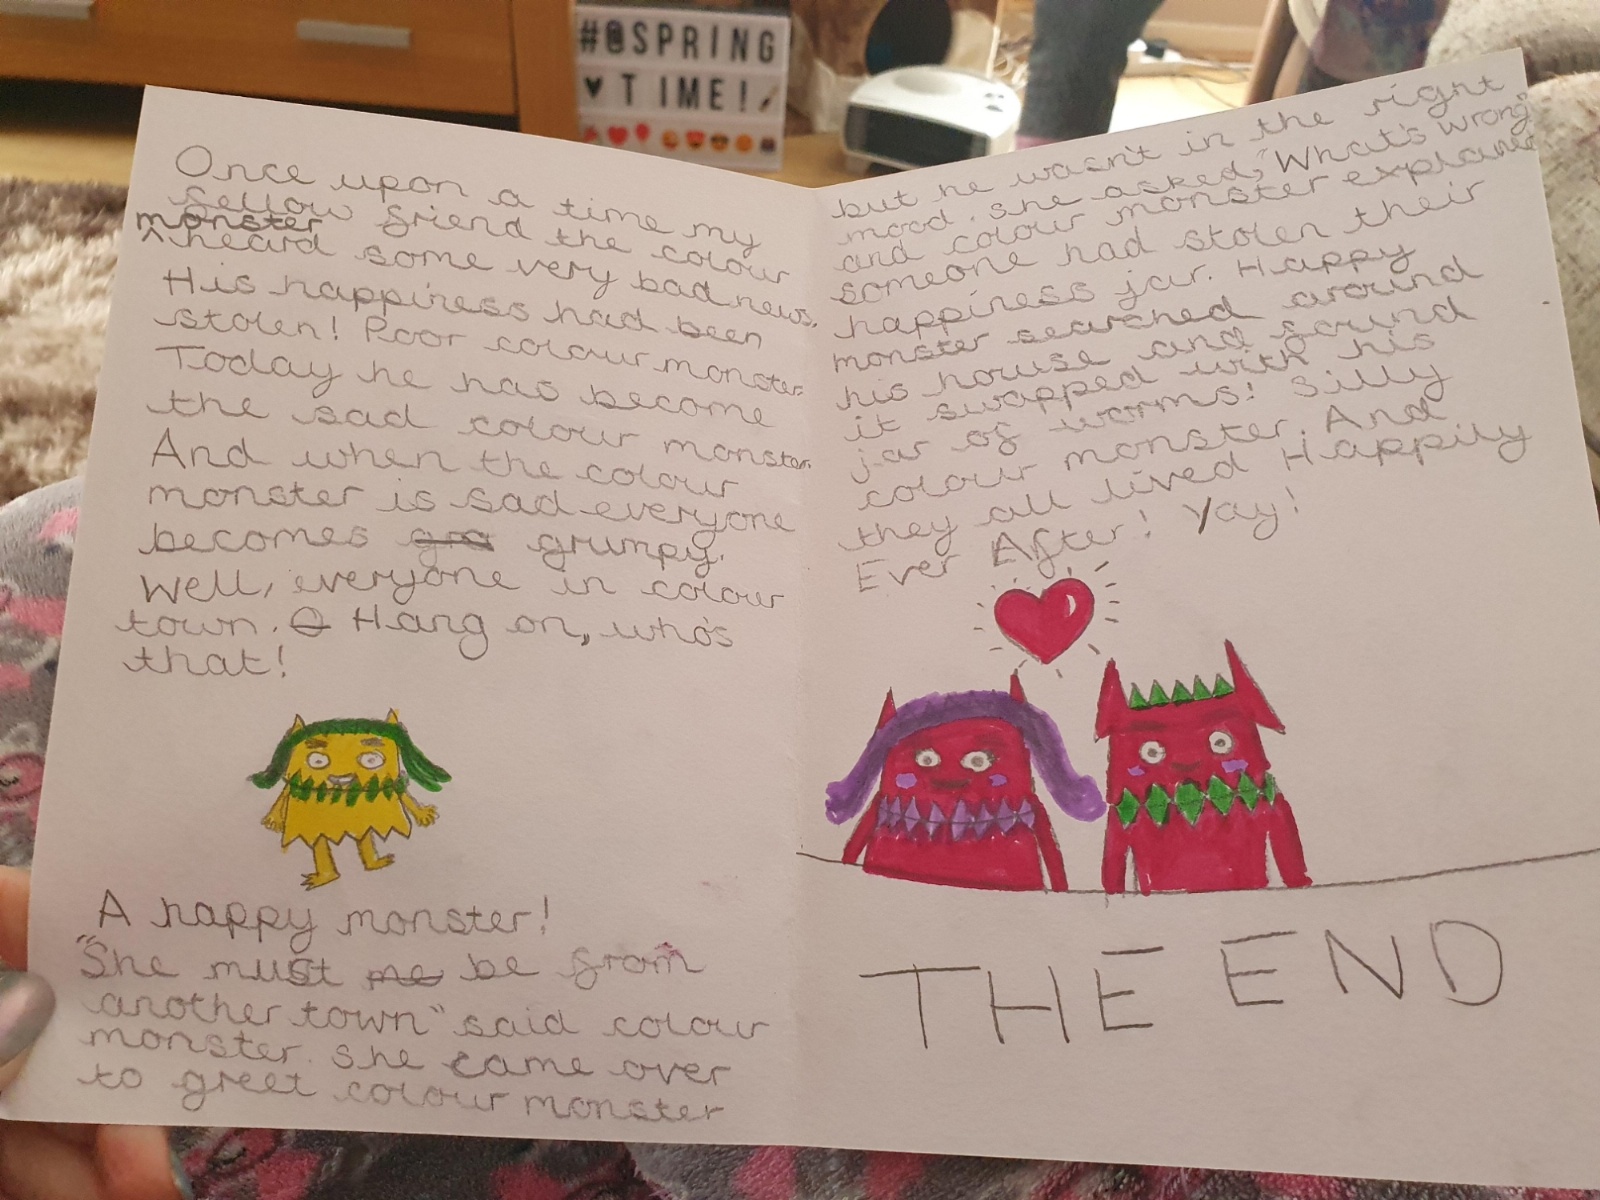 #@SPRING
♥ TIME!
Once upon a time my
fellow friend the colour
monster
^ heard some very bad news.
His happiness had been
stolen! Poor colour monster.
Today he has become
the sad colour monster.
And when the colour
monster is sad everyone
becomes gra grumpy.
Well, everyone in colour
town. O Hang on, who's
that!
A happy monster!
"She must me be from
another town" said colour
monster. She came over
to greet colour monster
but he wasn't in the right
mood. She asked, "What's wrong"
and colour monster explained
someone had stolen their
happiness jar. Happy
monster searched around
his house and found
it swapped with his
jar of worms! Silly
colour monster. And
they all lived Happily
Ever After! Yay!
THE END